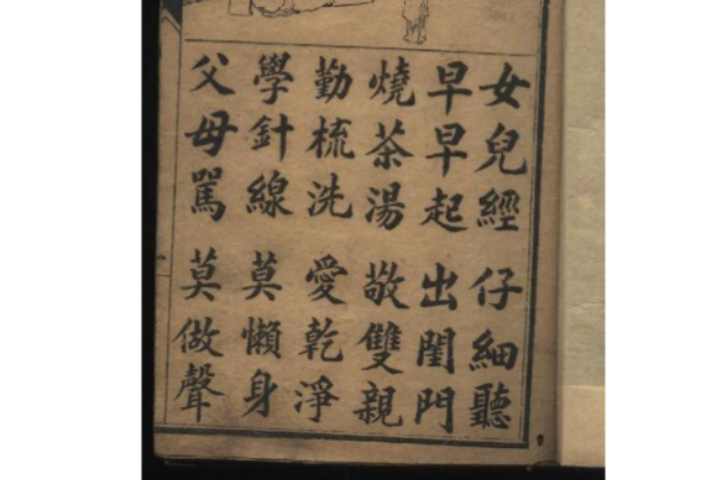 女兒經仔細聽
早早起出閨門
燒茶湯敬雙親
勤梳洗愛乾淨
學針線莫懶身
父母罵莫做聲